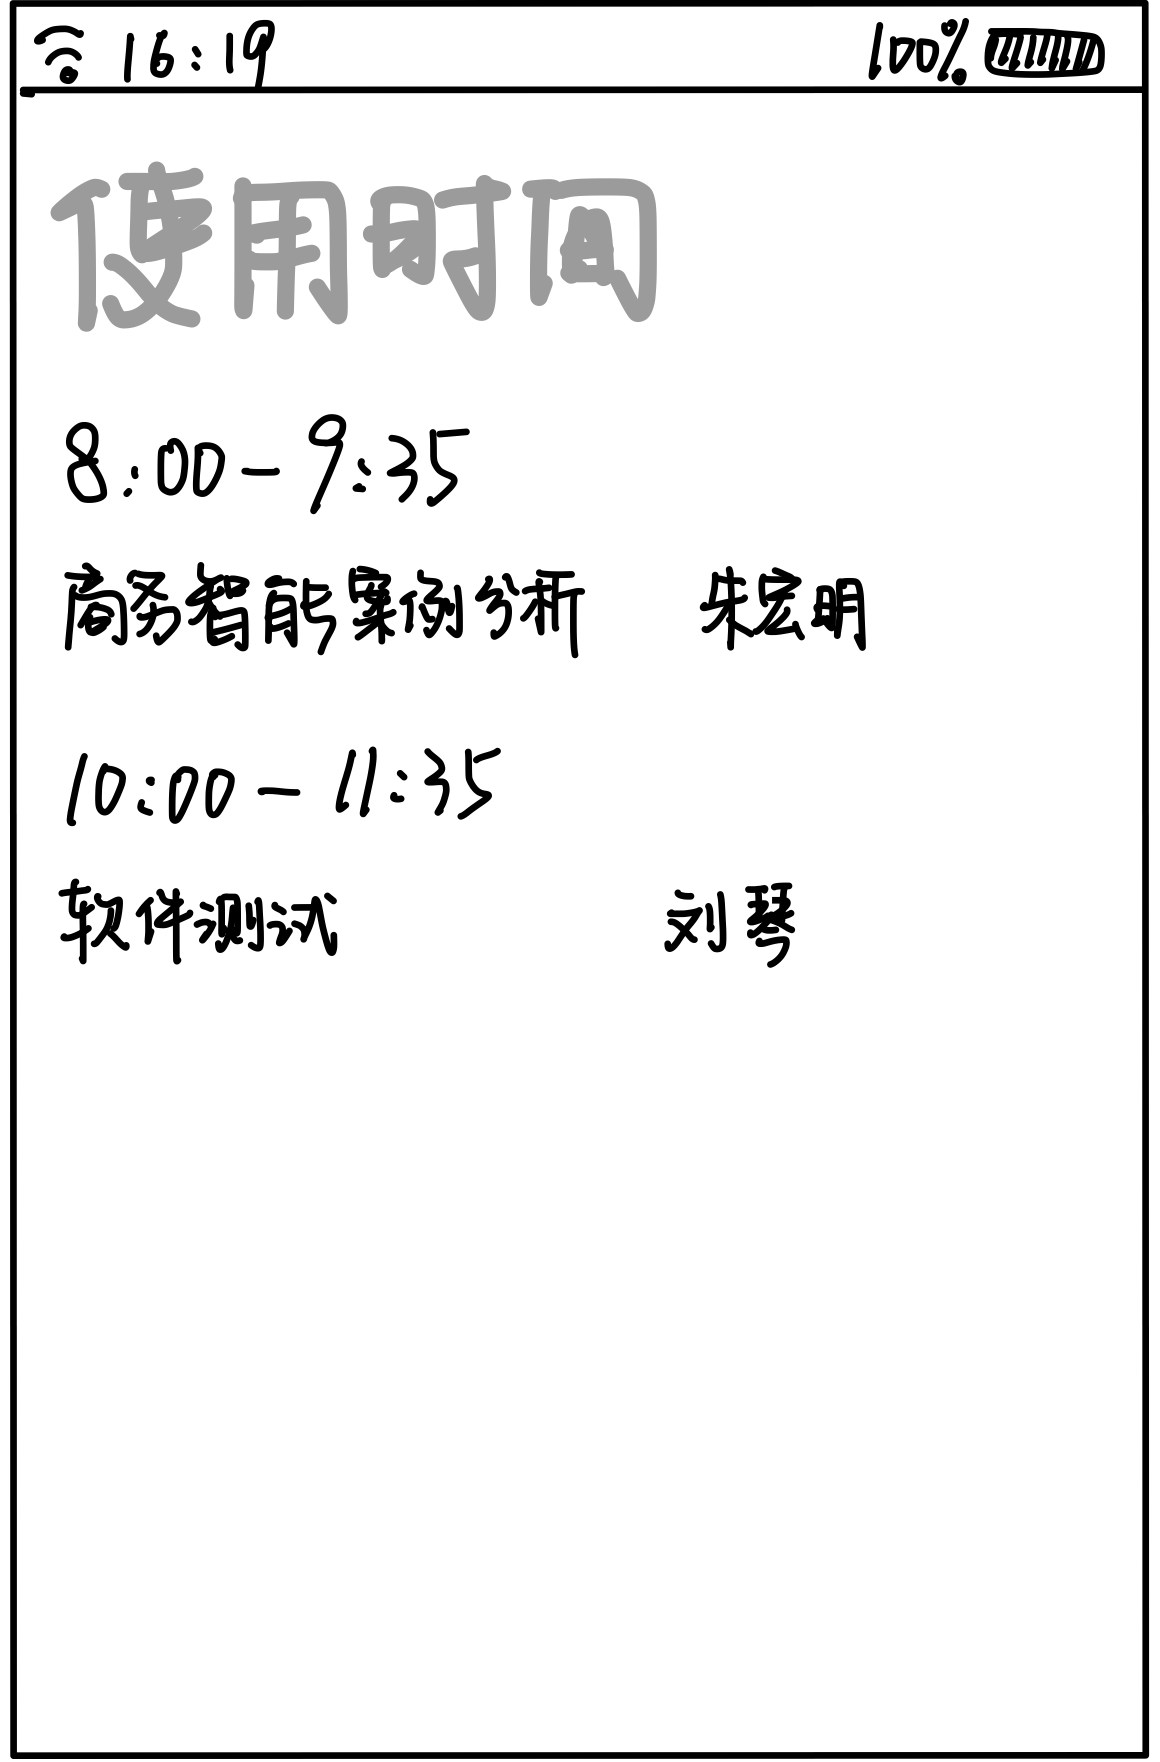 16:19 100%
使用时间
8:00-9:35
商务智能案例分析 朱宏明
10:00-11:35
软件测试 刘琴